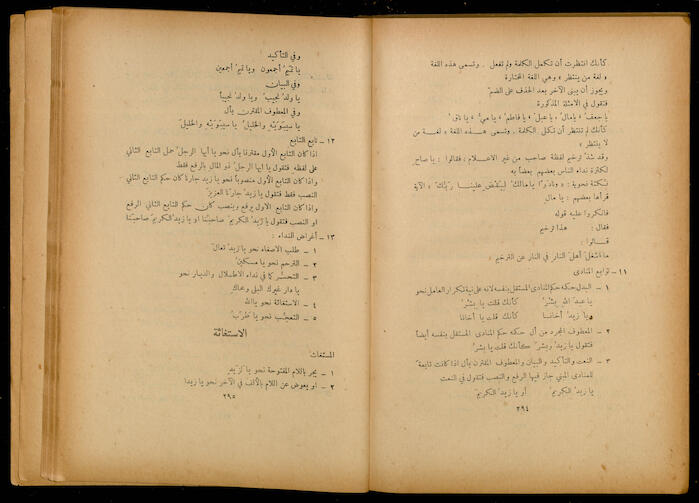 كأنك انتظرت أن تكمل الكلمة ولم تفعل . وتسمى هذه اللغة
« لغة من ينتظر » وهي اللغة المختارة
ويجوز أن يبنى الآخر بعد الحذف على الضم
فتقول في الامثلة المذكورة
يا جعفُ » يا مالُ » يا عبلُ » يا فاطمُ » يا ميُ » يا ناقُ »
كأنك لم تنتظر أن تكمل الكلمة . وتسمى هذه اللغة « لغة من
لا ينتظر »
وقد شذ ترخيم لفظة صاحب من غير الاعلام ، فقالوا : يا صاح
لكثرة نداء الناس بعضهم بعضاً به
نكتة نحوية : « ونادوْا يا مالك ليقض علينا ربك » الآية
قرأها بعضهم : يا مال
فانكروا عليه قوله
فقال : هذا ترخيم
قالوا :
ما اشغل أهل النار في النار عن الترخيم :
١١ – توابع المنادى
١ – البدل حكمه حكم المنادى المستقل بنفسه لانه على نية تكرار العامل نحو
يا عبدَ الله بشرُ كأنك قلت يا بشرُ
يا زيدُ أخانا كأنك قلت يا أخانا
٢ – المعطوف المجرد من أل حكمه حكم المنادى المستقل بنفسه أيضاً
فتقول يا زيدُ وبشرُ كأنك قلت يا بشرُ
٣ – النعت والتأكيد والبيان والمعطوف المقترن بأل اذا كانت تابعة
للمنادى المبني جاز فيها الرفع والنصب فتقول في النعت
يا زيدُ الكريمُ أو يا زيدُ الكريمَ
٢٩٤
وفي التأكيد
يا تميمُ أجمعون ويا تميمُ أجمعين
وفي البيان
يا ولدُ نجيبٌ ويا ولدُ نجيباً
وفي المعطوف المقترن بأل
يا سيبويهِ والخليلُ يا سيبويهِ والخليلَ
١٢ – تابع التابع
اذا كان التابع الأول مقترنا بأل نحو يا أيها الرجلُ حمل التابع الثاني
على لفظه فتقول يا أيها الرجلُ ذو المال بالرفع فقط
واذا كان التابع الأول منصوباً نحو يا زيد جارنا كان حكم التابع الثاني
النصب فقط فتقول يا زيدُ جارنا العزيزَ
واذا كان التابع الاول يرفع وينصب كان حكم التابع الثاني الرفع
او النصب فتقول يا زيدُ الكريمُ صاحبنا او يا زيدُ الكريمَ صاحبنا
١٣ – أغراض النداء :
١ – طلب الاصغاء نحو يا زيدُ تعال
٢ – الترحم نحو يا مسكين
٣ – التحسُّر كما في نداء الاطلال والديار نحو
يا دار غيرك البلى ومحاك
٤ – الاستغاثة نحو يا الله
٥ – التعجّب نحو يا طربُ
الاستغاثة
المستغاث
١ – يجر باللام المفتوحة نحو يا لَزيد
٢ – او يعوض عن اللام بالألف في الآخر نحو يا زيدا
٢٩٥